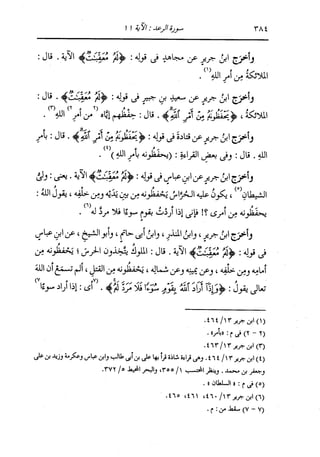 ٣٨٤
سورة الرعد : الآية ١١
وأخرج ابنُ جريرٍ عن مجاهدٍ فى قولِه : ﴿لَهُ مُعَقِّبَٰتٌ﴾ الآية . قال :
الملائكةُ مِن أمرِ اللهِ(١) .
وأخرَج ابنُ جريرٍ عن سعيدِ بنِ جبيرٍ فى قولِه : ﴿لَهُ مُعَقِّبَٰتٌ﴾ . قال :
الملائكةُ ، ﴿يَحْفَظُونَهُ مِنْ أَمْرِ اللَّهِ﴾ . قال : حِفظُهم إيَّاه (٢)من أمرِ(٢) اللهِ(٣) .
وأخرَج ابنُ جريرٍ عن قتادةَ فى قولِه : ﴿يَحْفَظُونَهُ مِنْ أَمْرِ اللَّهِ﴾ . قال : بأمرِ
اللهِ . قال : وفى بعضِ القراءةِ : (يحفظونه بأمرِ اللهِ)(٤) .
وأخرَج ابنُ جريرٍ عن ابنِ عباسٍ فى قولِه : ﴿لَهُ مُعَقِّبَٰتٌ﴾ الآية . يعنى : ولىُّ
الشيطانِ(٥) ، يكونُ عليه الحُرَّاسُ يَحْفَظونه مِن بينِ يدَيْه ومِن خلفِه ، يقولُ اللهُ :
يحفظونه مِن أمرى ؟! فإنى إذا أردْتُ بقومٍ سوءًا فلا مردَّ له(٦) .
وأخرَج ابنُ جريرٍ ، وابنُ المنذرِ ، وابنُ أبى حاتمٍ ، وأبو الشيخِ ، عن ابنِ عباسٍ
فى قولِه : ﴿لَهُ مُعَقِّبَٰتٌ﴾ الآية . قال : الملوكُ يتَّخِذون الحرسَ ؛ يحفظونه مِن
أمامِه ومِن خلفِه ، وعن يمينِه وعن شمالِه ، يحفظونه مِن القتلِ ، ألم تسمَعْ أن اللهَ
تعالى يقولُ : ﴿وَإِذَا أَرَادَ اللَّهُ بِقَوْمٍ سُوءًا فَلَا مَرَدَّ لَهُ﴾ . (٧)أى : إذا أراد سوءًا(٧)
(١) ابن جرير ١٣/ ٤٦٤.
(٢ - ٢) فى م : «بأمره» .
(٣) ابن جرير ١٣/ ٤٦٣.
(٤) ابن جرير ١٣/ ٤٦٤. وهى قراءة شاذة قرأ بها على بن أبى طالب وابن عباس وعكرمة وزيد بن على
وجعفر بن محمد . وينظر المحتسب ١/ ٣٥٥، والبحر المحيط ٥/ ٣٧٢.
(٥) فى م : «السلطان» .
(٦) ابن جرير ١٣/ ٤٦٠، ٤٦١، ٤٦٥.
(٧ - ٧) سقط من : م .